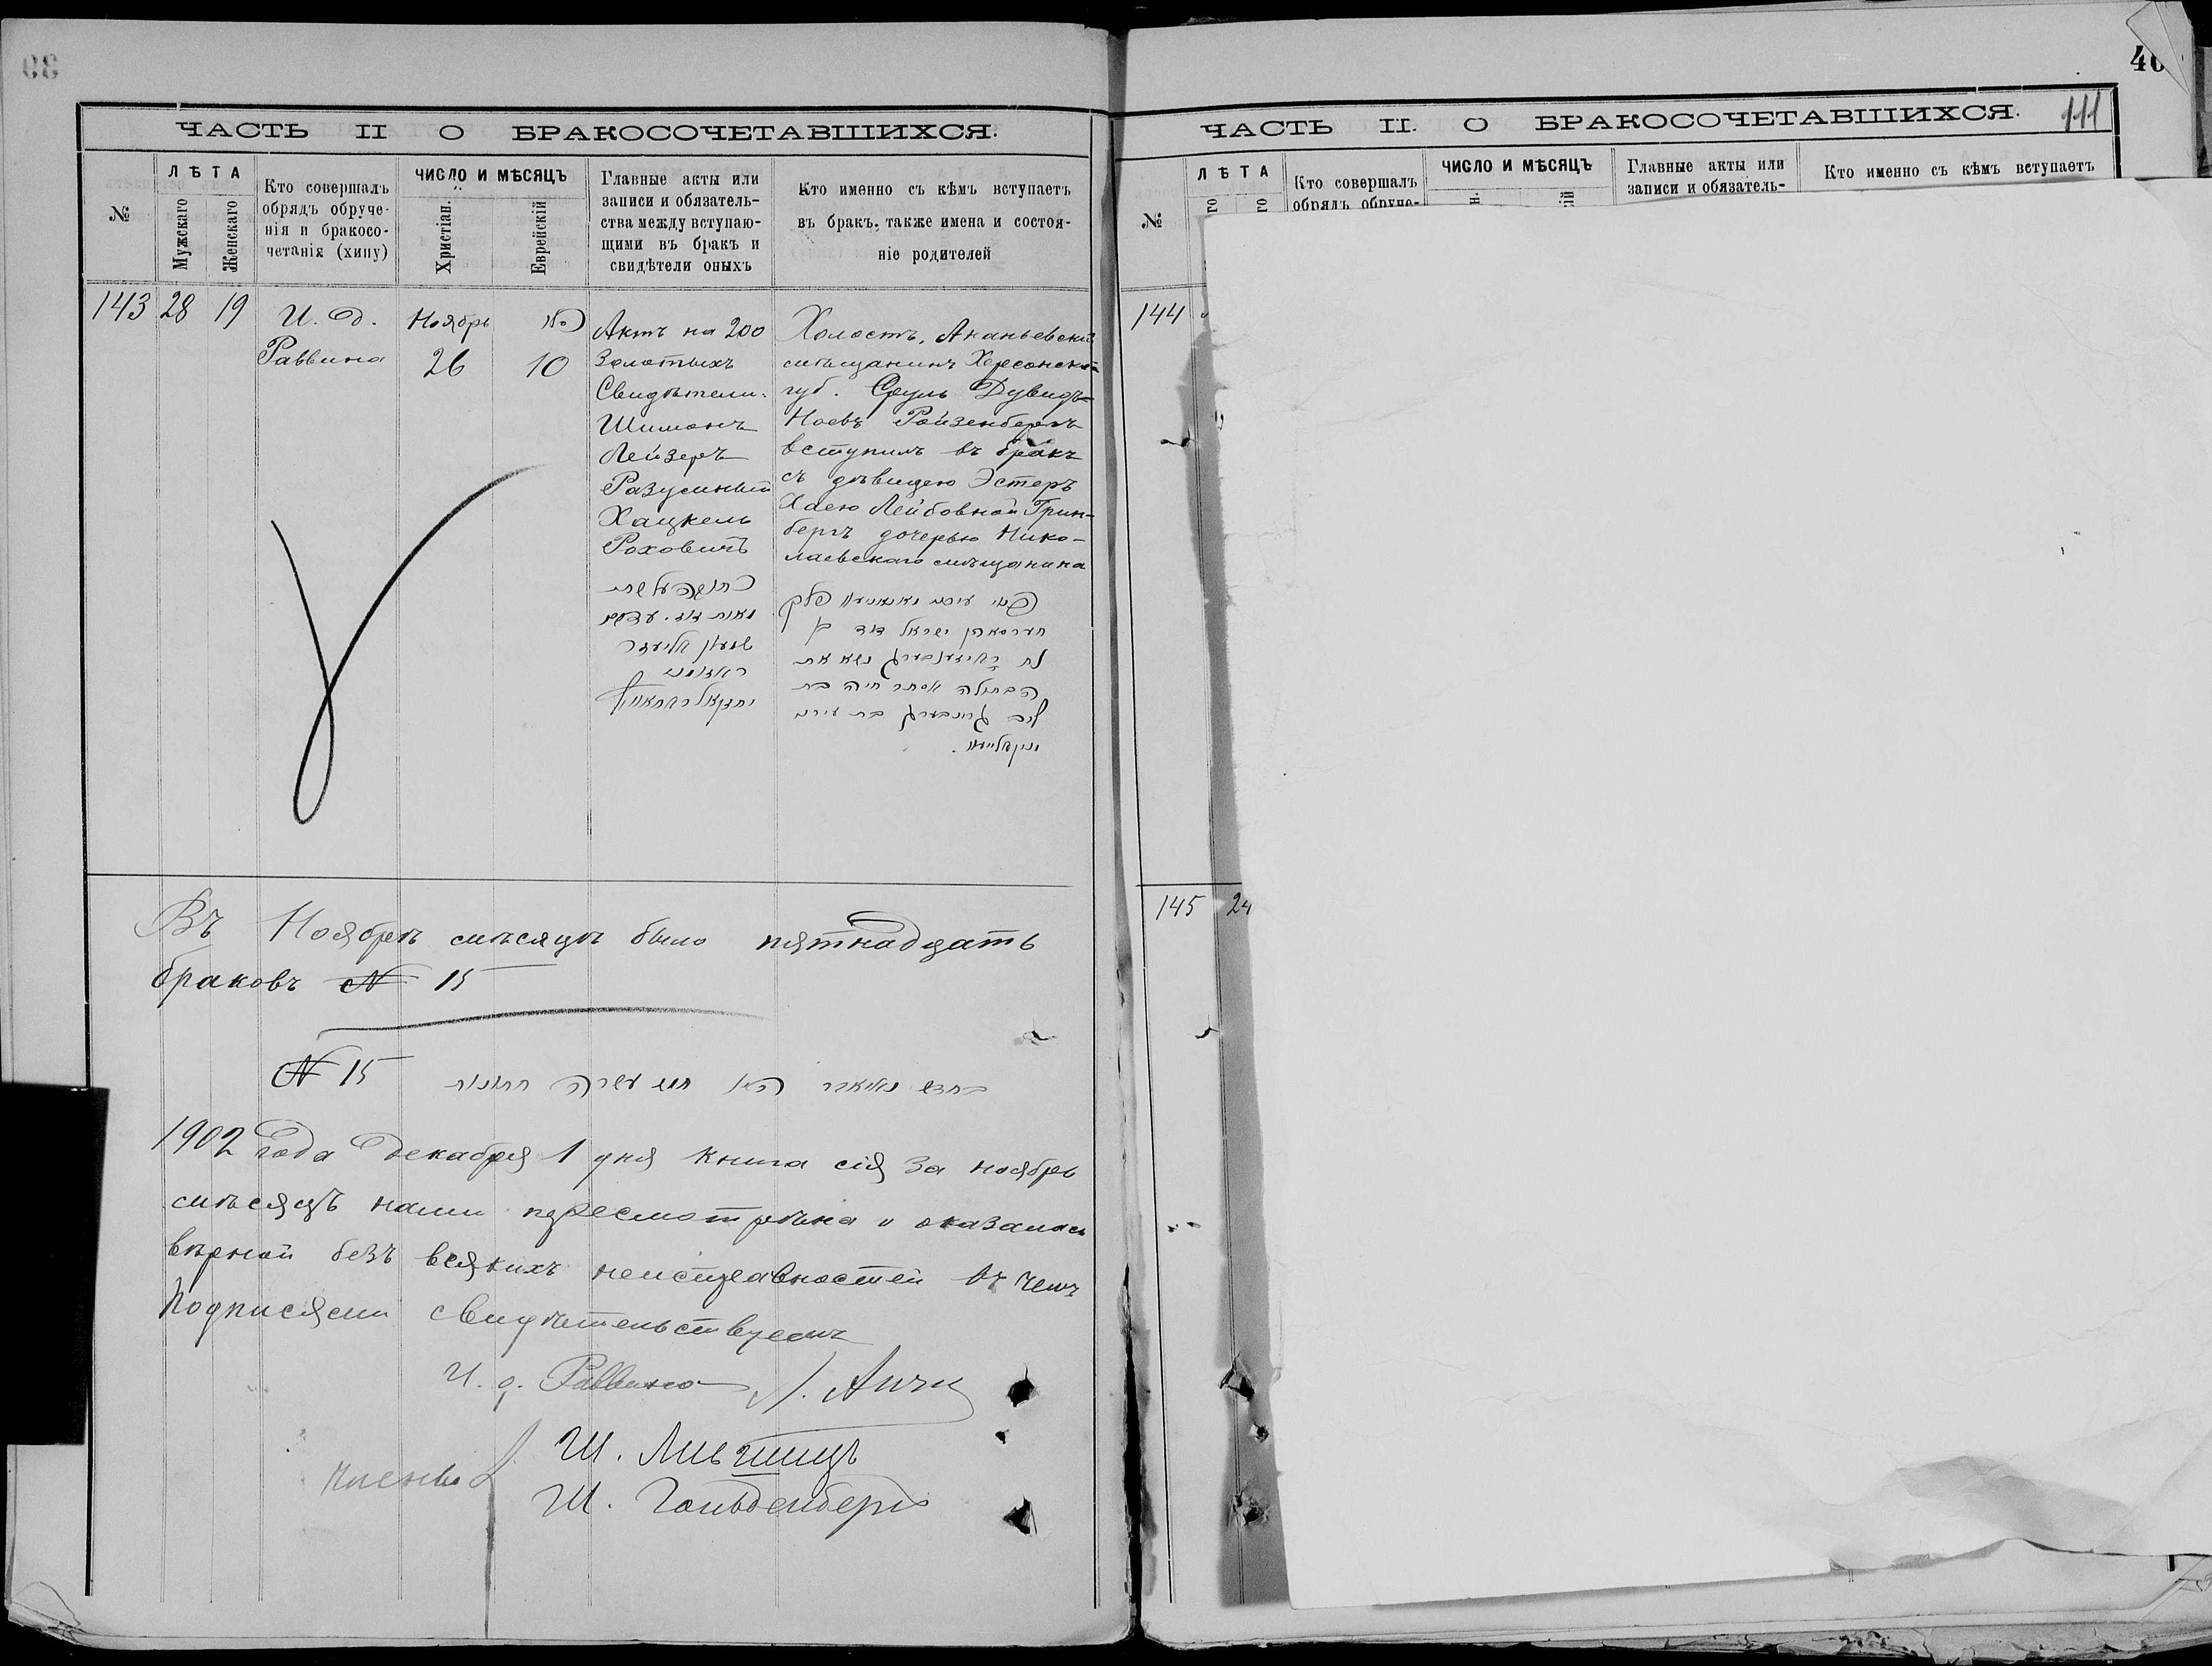 39
ЧАСТЬ II О БРАКОСОЧЕТАВШИХСЯ.
№
ЛѢТА
Мужскаго
Женскаго
Кто совершалъ
обрядъ обруче-
нія и бракосо-
четанія (хипу)
ЧИСЛО И МѢСЯЦЪ
Христіан.
Еврейскій
Главные акты или
записи и обязатель-
ства между вступаю-
щими въ бракъ и
свидѣтели оныхъ
Кто именно съ кѣмъ вступаетъ
въ бракъ, также имена и состоя-
ніе родителей
143 28 19
И. д.
Раввина
Ноябрь
26
10
Актъ на 200
Золотыхъ
Свидѣтели:
Шимонъ
Лейзеръ
Разумный
Хацкель
Роховичъ
Холостъ, Ананьевскій
мѣщанинъ Херсонской
губ. Сруль Дувидъ=
Ноевъ Ройзенбергъ
вступилъ въ бракъ
съ дѣвицею Эстеръ
Хаею Лейбовной Грин-
бергъ дочерью Нико-
лаевскаго мѣщанина
שמעון אליעזר
ישראל דוד בן
נח
נשא את
הבתולה אסתר חיה בת
ליב גרינבערג
Въ Ноябрѣ мѣсяцѣ было пятнадцать
браковъ № 15
№ 15 בחדש נאיאבר היו חמש עשרה חתונות
1902 года Декабря 1 дня книга сія за ноябрь
мѣсяцъ нами пересмотрѣна и оказалась
вѣрной безъ всякихъ неисправностей въ чемъ
подписями свидѣтельствуемъ
И. д. Раввина
Члены
Ш.
Ш. Гольденбергъ
40
ЧАСТЬ II. О БРАКОСОЧЕТАВШИХСЯ.
111
№
ЛѢТА
Кто совершалъ
обрядъ обруче-
ЧИСЛО И МѢСЯЦЪ
Главные акты или
записи и обязатель-
Кто именно съ кѣмъ вступаетъ
144
145 24